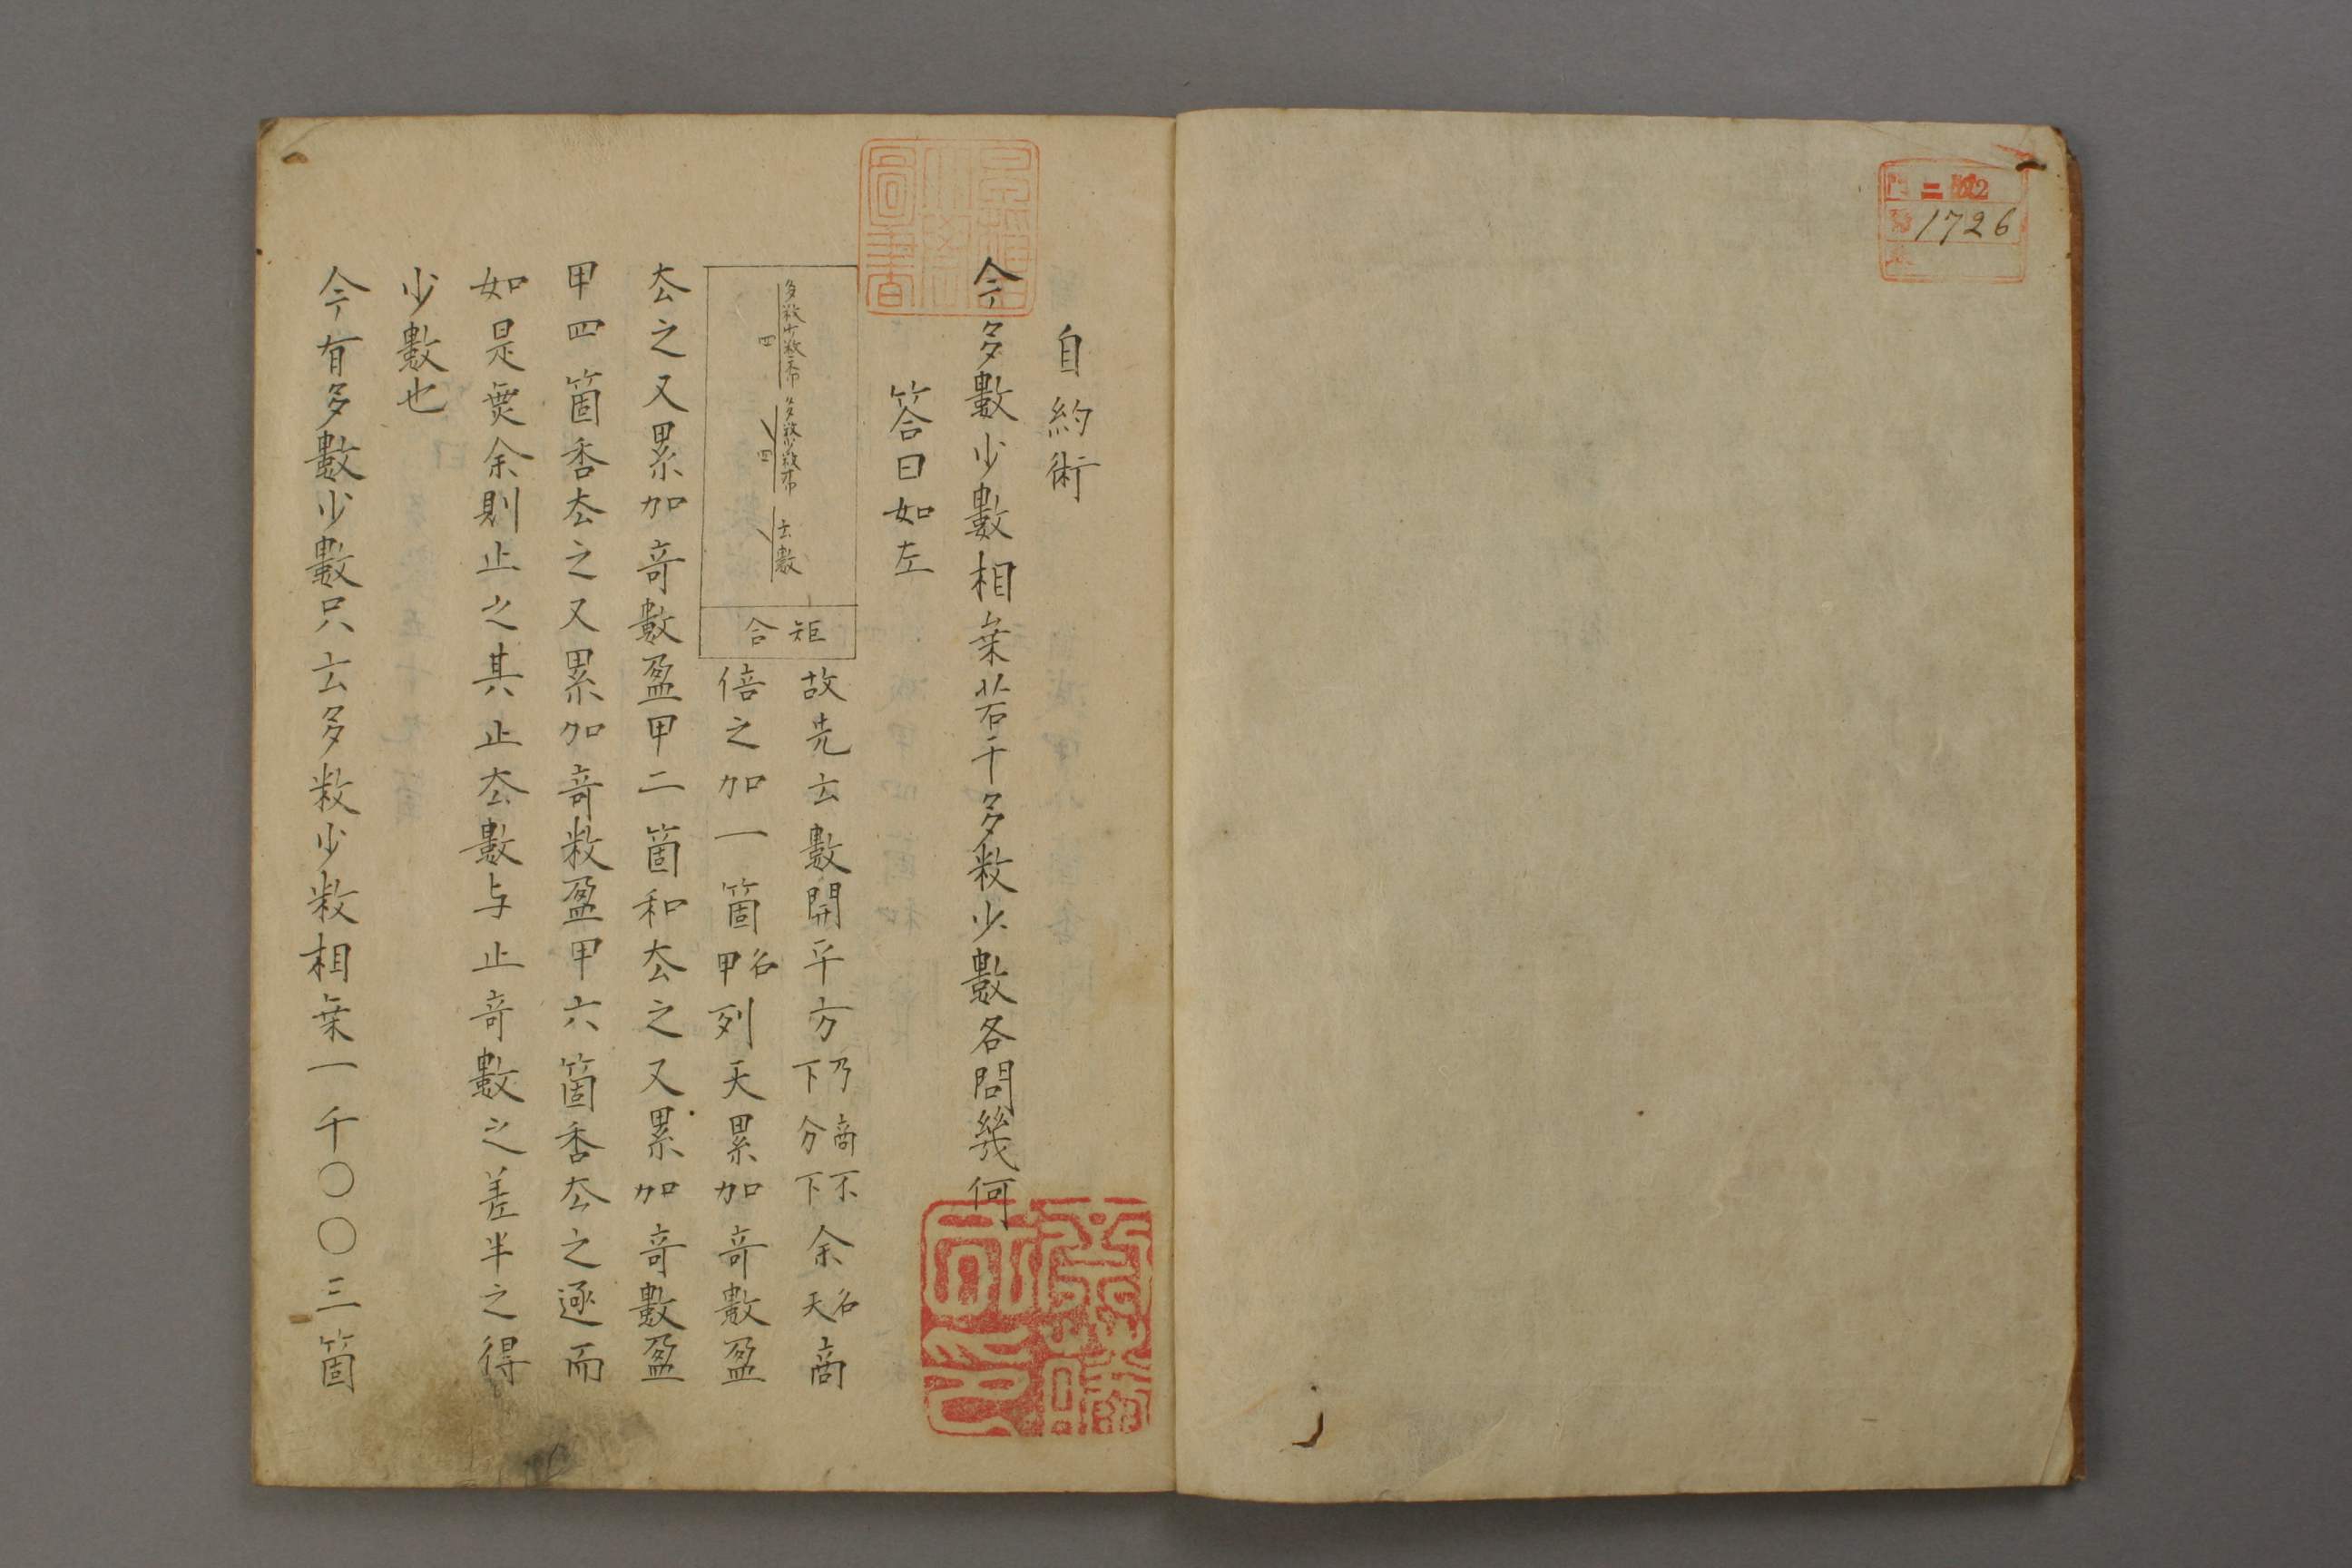 門 二 號2
1726
自約術
今多數少數相乗若干多数少數各問幾何
答曰如左
多数少数和巾 四
多数少数差巾 四
云數
矩合
故先云數開平方乃商不下分下余名天商
倍之加一箇名甲列天累加竒數盈
厺之又累加竒數盈甲二箇和厺之又累加竒數盈
甲四箇厺之又累加竒数盈甲六箇厺之逐而
如是無余則止之其止厺數与止竒數之差半之得
少數也
今有多數少數只云多数少数相乗一千〇〇三箇